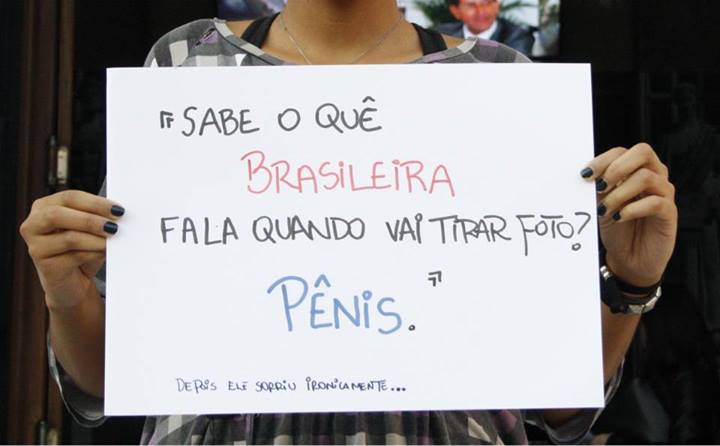 "SABE O QUÊ
BRASILEIRA
FALA QUANDO VAI TIRAR FOTO?
PÊNIS."
DEPOIS ELE SORRIU IRONICAMENTE...